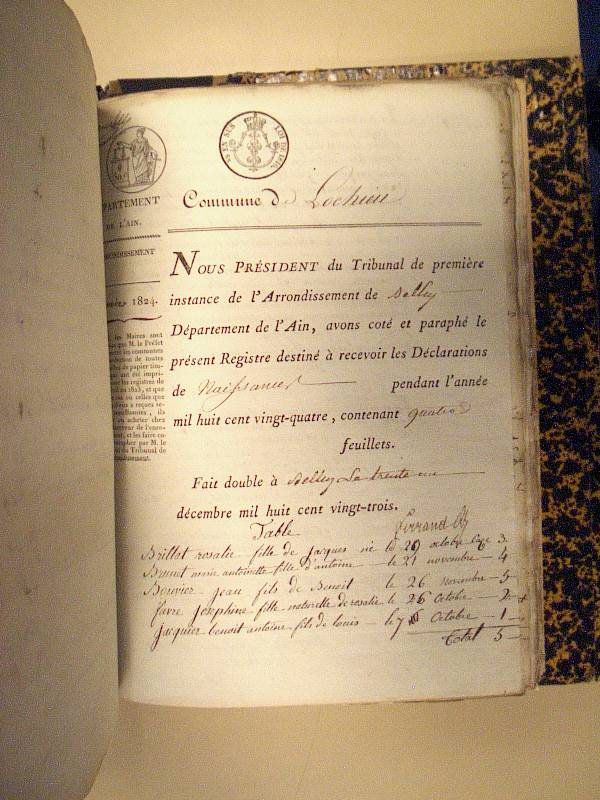 PARTEMENT
DE L'AIN.
1824.
les Maires sont
que M. le Préfet
les communes
de toutes
de papier tim-
ont été impri-
les registres de
en 1823, et que
ou celles que
à reçues se-
insuffisantes, ils
en acheter chez
de l'enre-
et les faire co-
par M. le
du Tribunal de
Commune d Lochieu
NOUS PRÉSIDENT du Tribunal de première
instance de l'Arrondissement de Belley
Département de l'Ain, avons coté et paraphé le
présent Registre destiné à recevoir les Déclarations
de Naissances pendant l'année
mil huit cent vingt-quatre, contenant quatre
feuillets.
Fait double à Belley Le trente un
décembre mil huit cent vingt-trois.
Table
Brillat rosalie fille de jacques né le 29 octobre 3
Brunet marie antoinette fille d'antoine le 21 novembre 4
Bouvier jean fils de Benoit le 26 Novembre 5
favre josephine fille naturelle de rosalie le 26 Octobre 2
jacquier benoit antoine fils de louis le 7 Octobre 1
total 5